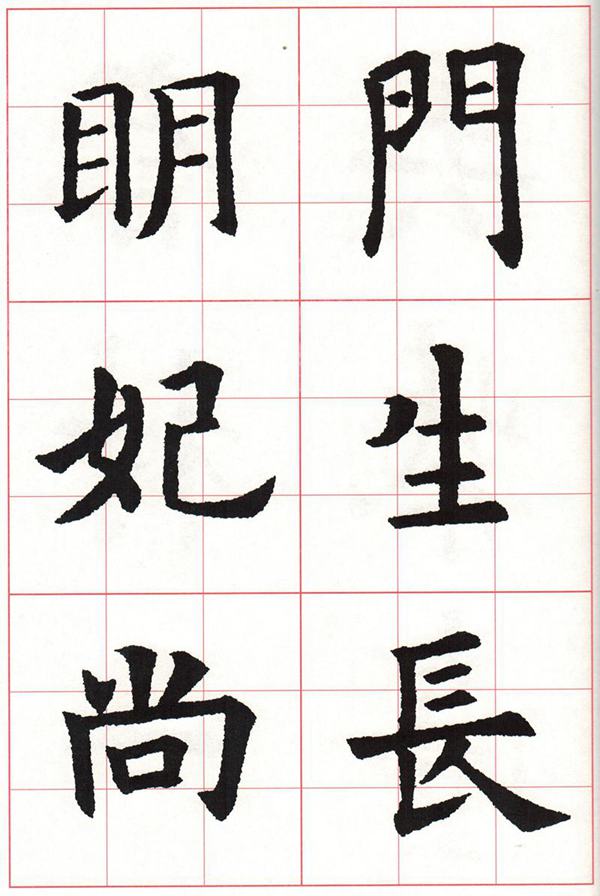 門生長
眀妃尚